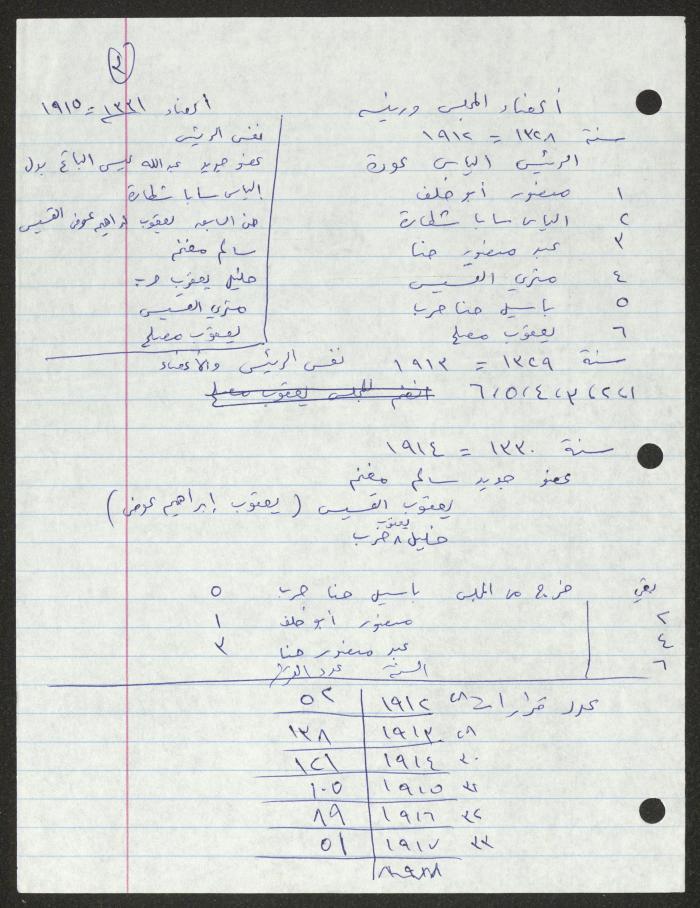 ٢
أعضاء المجلس ورئيسه
سنة ١٣٢٨ = ١٩١٢
الرئيس الياس عودة
١ منصور أبو خلف
٢ الياس سابا شطارة
٣ عبد منصور حنا
٤ متري القسيس
٥ باسيل حنا حرب
٦ يعقوب مصلح
أعضاء ١٣٣١ = ١٩١٥
نفس الرئيس
عضو جديد عبدالله عيسى الباع بدل
الياس سابا شطارة
يعقوب ابراهيم عوض القسيس
سالم مغنم
خليل يعقوب حرب
متري القسيس
يعقوب مصلح
سنة ١٣٢٩ = ١٩١٣ نفس الرئيس والأعضاء
١، ٢، ٣، ٤، ٥، ٦ انضم للمجلس يعقوب مصلح
سنة ١٣٣٠ = ١٩١٤
عضو جديد سالم مغنم
يعقوب القسيس (يعقوب إبراهيم عوض)
خليل يعقوب حرب
بقي خرج من المجلس باسيل حنا حرب ٥
٢ منصور أبو خلف ١
٤ عبد منصور حنا ٣
٦ السنة عدد القرارات
عدد قرارات ٢٨ ١٩١٢ ٥٢
٢٩ ١٩١٣ ١٣٨
٣٠ ١٩١٤ ١٢١
٣١ ١٩١٥ ١٠٥
٣٢ ١٩١٦ ٨٩
٣٣ ١٩١٧ ٥١